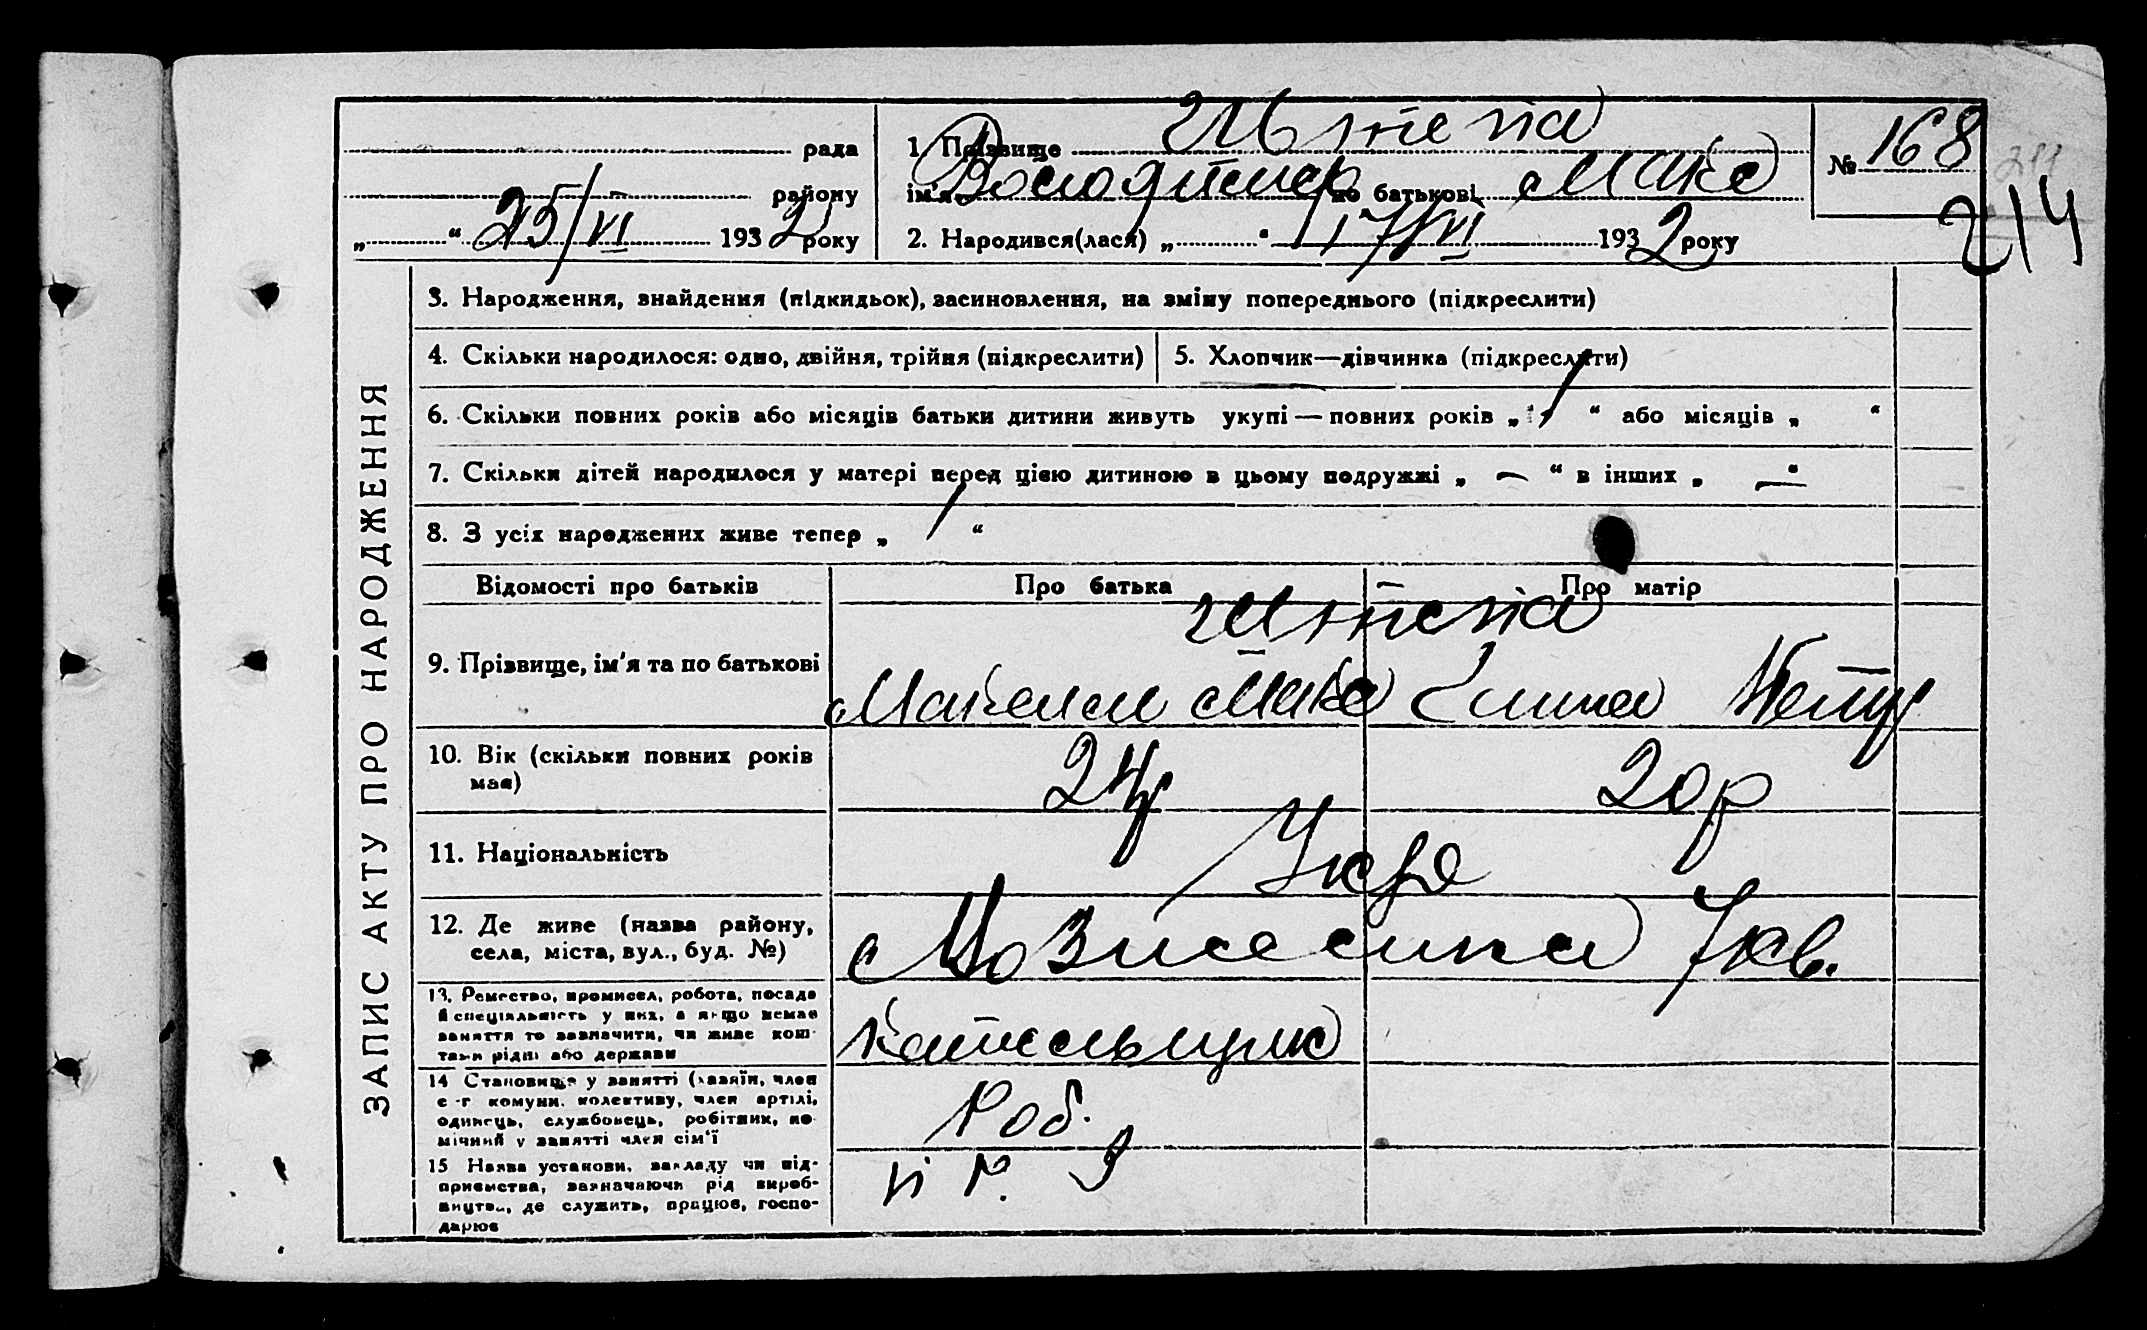 рада
району
„ “ 25/VI 1932 року
1. Прізвище Штепа
ім'я Володимир по батькові Макс
2. Народився(лася) „ “ 17/VI 1932 року
№ 168
211
214
ЗАПИС АКТУ ПРО НАРОДЖЕННЯ
3. Народження, знайдення (підкидьок), засиновлення, на зміну попереднього (підкреслити)
4. Скільки народилося: одно, двійня, трійня (підкреслити)
5. Хлопчик—дівчинка (підкреслити)
6. Скільки повних років або місяців батьки дитини живуть укупі — повних років „ 1 “ або місяців „ “
7. Скільки дітей народилося у матері перед цією дитиною в цьому подружжі „ — “ в інших „ — “
8. З усіх народжених живе тепер „ 1 “
Відомості про батьків
Про батька
Про матір
9. Прізвище, ім'я та по батькові
Штепа
Максим Макс
Петр
10. Вік (скільки повних років
має)
24р
20р
11. Національність
Укр
12. Де живе (назва району,
села, міста, вул., буд. №)
7 кв.
13. Ремество, промисел, робота, посада
й спеціяльність у них, а якщо немає
заняття то зазначити, чи живе кош-
тами рідні або держави
14 Становище у занятті (хазяїн, член
с-г комуни, колективу, член артілі,
одинець, службовець, робітник, по-
мічний у занятті член сім'ї
Роб.
15 Назва установи, закладу чи під-
приємства, зазначаючи рід вироб-
ництва, де служить, працює, госпо-
дарює